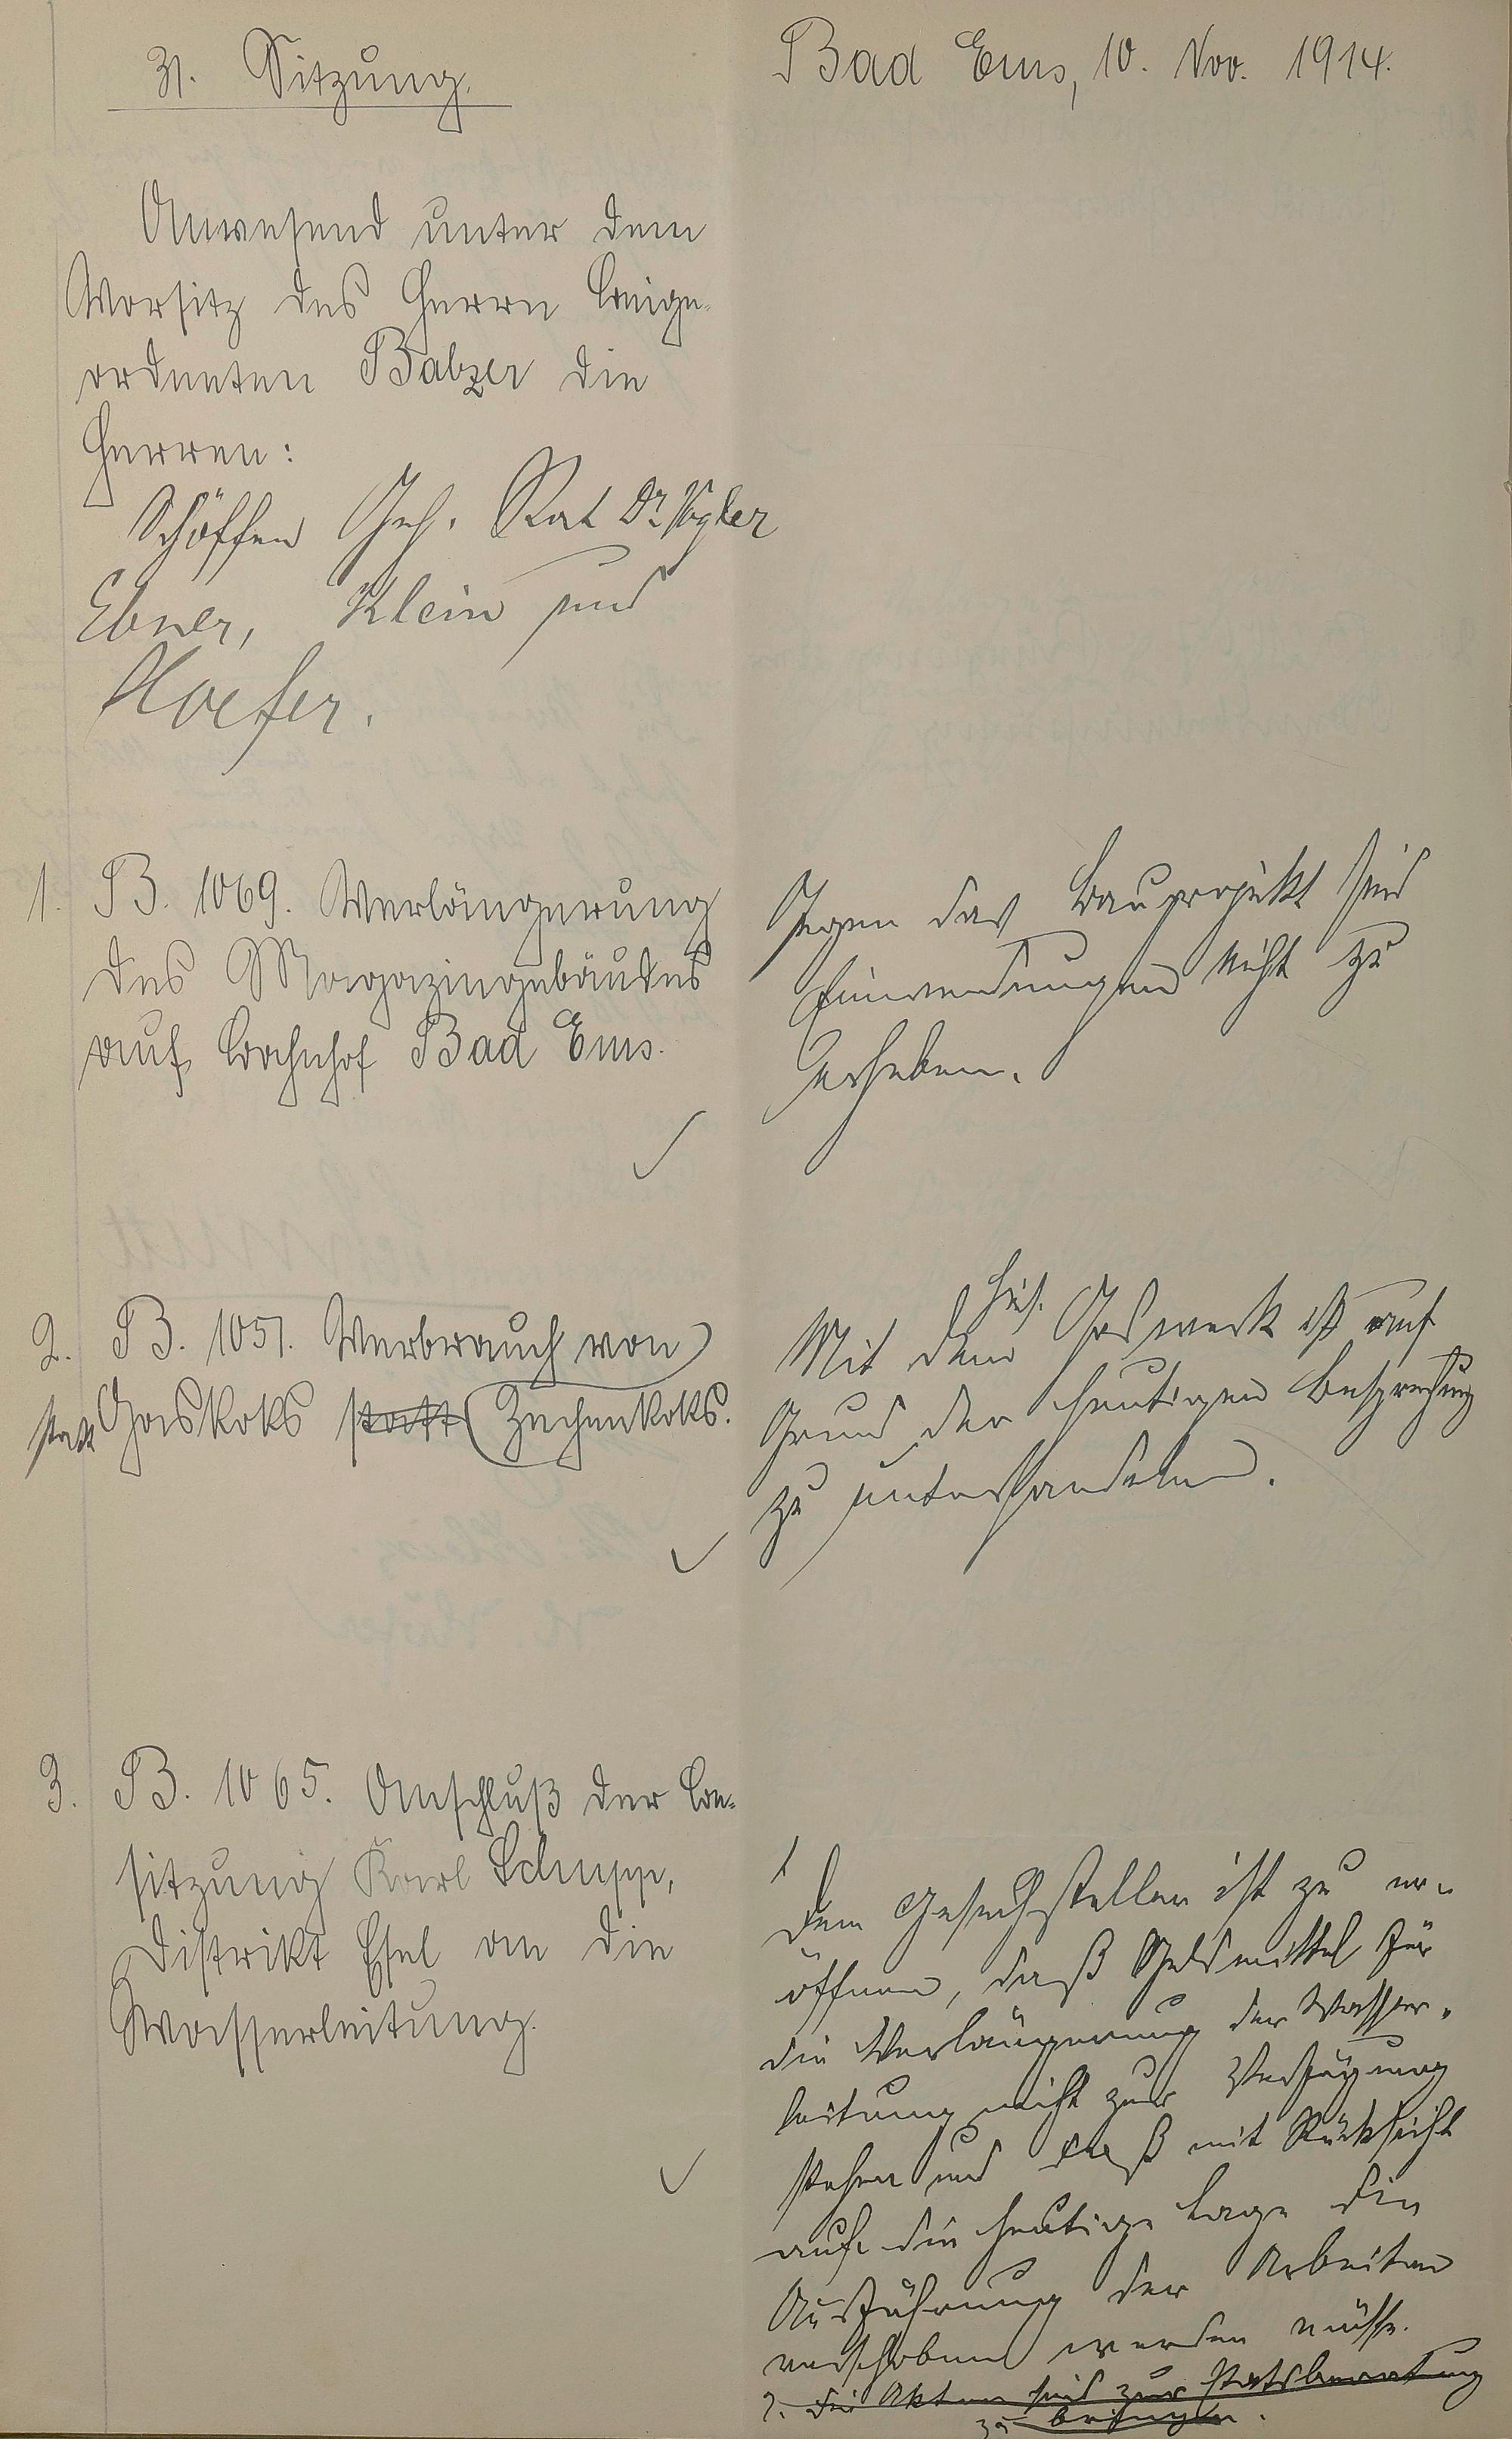 31. Sitzung.
Bad Ems, 10. Nov. 1914.
Anwesend unter dem
Vorsitz des Herrn Beige-
ordneten Balzer die
Herren:
Schöffen Geh. Rat Dr. Vogler
Ebner, Klein und
Hoefer.
1. B. 1069. Verlängerung
des Magazingebäudes
auf Bahnhof Bad Ems.
Gegen das Bauprojekt sind
Einwendungen nicht zu
erheben.
2. B. 1051. Verbrauch von
statt Gaskoks statt Zechenkoks.
Mit dem hies. Gaswerk ist auf
Grund der heutigen Besprechung
zu unterhandeln.
3. B. 1065. Anschluß der Be-
sitzung Karl Schupp,
Distrikt Esel an die
Wasserleitung.
1
Dem Gesuchsteller ist zu er-
öffnen, daß Geldmittel für
die Verlängerung der Wasser-
leitung nicht zur Verfügung
stehen und daß mit Rücksicht
auf die heutige Lage die
Ausführung der Arbeiten
verschoben werden müsse.
2. Die Akten sind zur Etatsberatung
zu bringen.